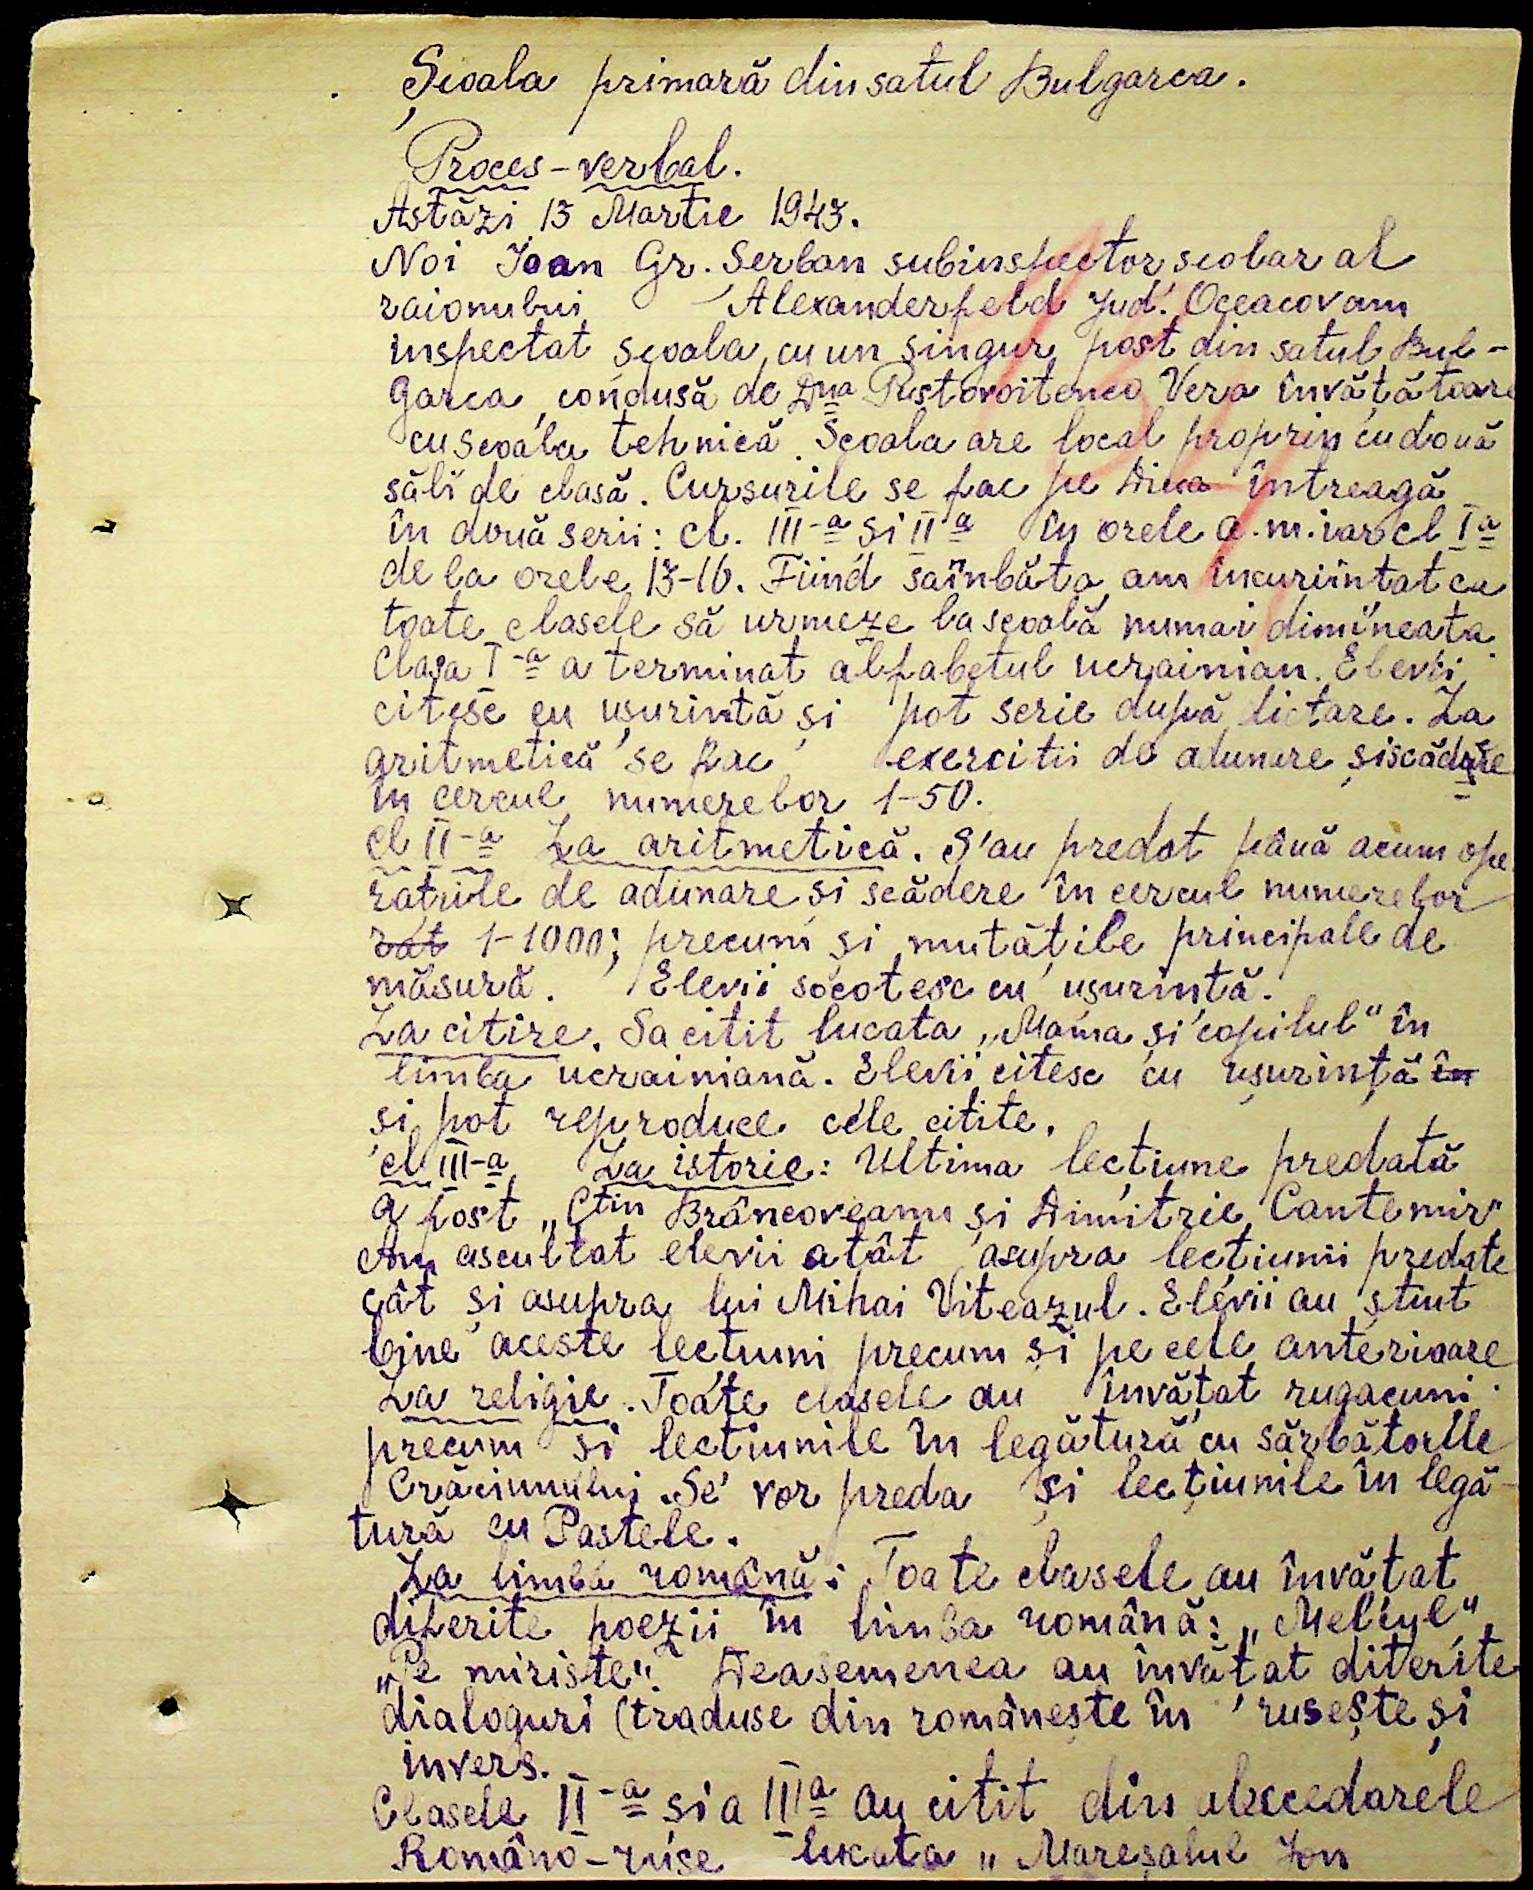 Școala primară din satul Bulgarca.
Proces-verbal.
Astăzi 13 Martie 1943.
Noi Ioan Gr. Șerban subinspector școlar al
raionului Alexanderfeld Jud. Oceacov am
inspectat școala cu un singur post din satul Bul-
garca, condusă de Dna Pustovoitenco Vera învățătoare
cu școala tehnică. Școala are local propriu cu două
săli de clasă. Cursurile se fac pe ziua întreagă
în două serii: cl. III-a și II-a în orele a.m. iar cl I-a
de la orele 13-16. Fiind saînbăta am încuriintat ca
toate clasele să urmeze la școală numai dimineața.
Clasa I-a a terminat alfabetul ucrainian. Elevii
citesc cu ușurință și pot scrie după dictare. La
aritmetică se fac exercitii de adunare și scădere
în cercul numerelor 1-50.
cl II-a La aritmetică. S'au predat până acum ope
rațiile de adunare și scădere în cercul numerelor
rat 1-1000; precum și mutățile principale de
măsură. Elevii socotesc cu ușurință.
La citire. Sa citit bucata „Mama și copilul" în
limba ucrainiană. Elevii citesc cu ușurință în
și pot reproduce cele citite.
cl III-a La istorie: Ultima lecțiune predată
a fost „Ctin Brâncoveanu și Dimitrie Cantemir"
Am ascultat elevii atât asupra lecțiunii predate
cât și asupra lui Mihai Viteazul. Elevii au știut
bine aceste lecțiuni precum și pe cele anterioare
La religie. Toate clasele au învățat rugacuni
precum și lecțiunile în legătură cu sărbătorile
Crăciunului. Se vor preda și lecțiunile în legă-
tură cu Pastele.
La limba română: Toate clasele au învățat
diferite poezii în limba română: „Melcul"
„Pe miriste". Deasemenea au învățat diferite
dialoguri (traduse din românește în rusește și
invers.
Clasele II-a și a III a au citit din abecedarele
Româno-ruse bucata „Mareșalul Ion